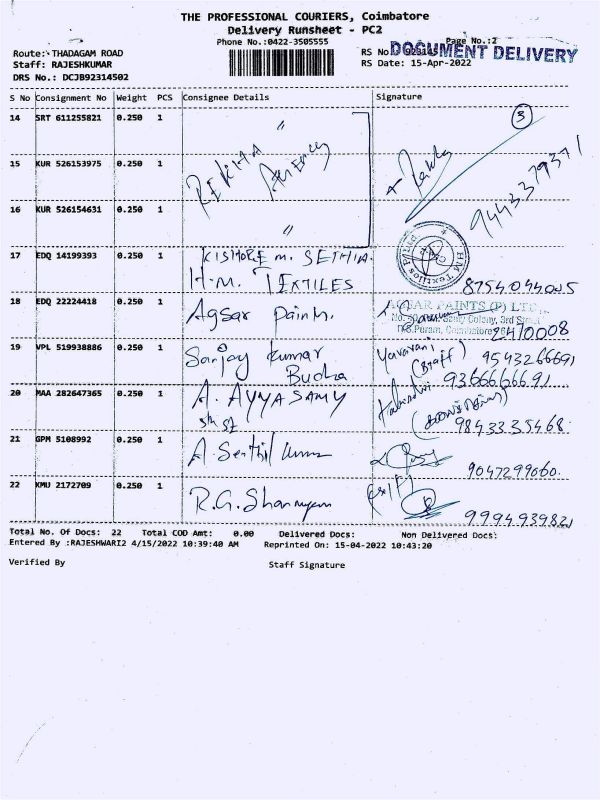 THE PROFESSIONAL COURIERS, Coimbatore
Delivery Runsheet - PC2
Phone No.:0422-3505555
Page No.:2
Route: THADAGAM ROAD
RS No.
DOCUMENT DELIVERY
Staff: RAJESHKUMAR
RS Date: 15-Apr-2022
DRS No.: DCJB92314502
S No Consignment No Weight PCS Consignee Details Signature
14 SRT 611255821 0.250 1 〃
3
15 KUR 526153975 0.250 1 REKHA AGENCY Rekha
9443379371
16 KUR 526154631 0.250 1 〃
17 EDQ 14199393 0.250 1 KISHORE M. SETHIA.
H.M. TEXTILES
HM Textiles P Ltd
8754044005
18 EDQ 22224418 0.250 1 Agsar Paints.
AGSAR PAINTS (P) LTD
Colony, 3rd Street
Coimbatore
2470008
19 VPL 519938886 0.250 1 Sanjay Kumar
Bucha
(Staff) 9543266691
20 MAA 282647365 0.250 1 A. AYYASAMY
9366666691
9843335468
21 GPM 5108992 0.250 1 A. Senthil Kumar
9047299060.
22 KMU 2172709 0.250 1 R.G. Shanmugam
9994939821
Total No. Of Docs: 22 Total COD Amt: 0.00 Delivered Docs: Non Delivered Docs:
Entered By :RAJESHWARI2 4/15/2022 10:39:40 AM Reprinted On: 15-04-2022 10:43:20
Verified By Staff Signature